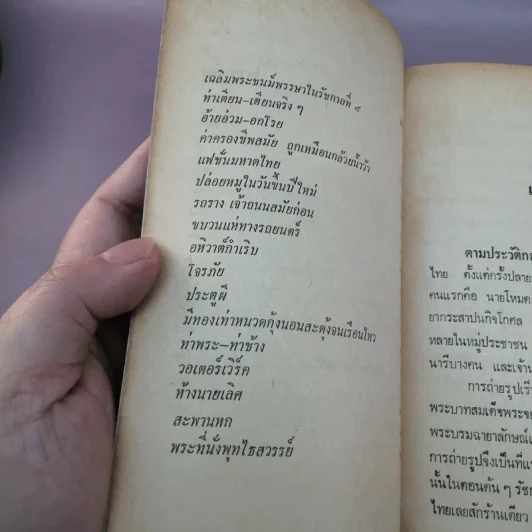 เฉลิมพระชนม์พรรษาในรัชกาลที่ ๕
ท่าเตียน-เตียนจริง ๆ
อ้ายอ่วม-อกโรย
ค่าครองชีพสมัย ถูกเหมือนกล้วยน้ำว้า
แฟชั่นมหาดไทย
ปล่อยหมูในวันขึ้นปีใหม่
รถราง เจ้าถนนสมัยก่อน
ขบวนแห่ทางรถยนตร์
อหิวาต์กำเริบ
โจรภัย
ประตูผี
มีทองเท่าหนวดกุ้งนอนสะดุ้งจนเรือนไหว
ท่าพระ-ท่าช้าง
วอเตอร์เวิร์ค
ห้างนายเลิศ
สะพานหก
พระที่นั่งพุทไธสวรรย์
ตามประวัติ
ไทย ตั้งแต่ครั้งปลาย
คนแรกคือ นายโหมด
ยากระสาปนกิจโกศล
หลายในหมู่ประชาชน
นารีบางคน และเจ้า
การถ่ายรูป
พระบาทสมเด็จพระ
พระบรมฉายาลักษณ์
การถ่ายรูปจึงเป็นที่
นั้นในตอนต้น ๆ
ไทยเลยสักร้านเดียว